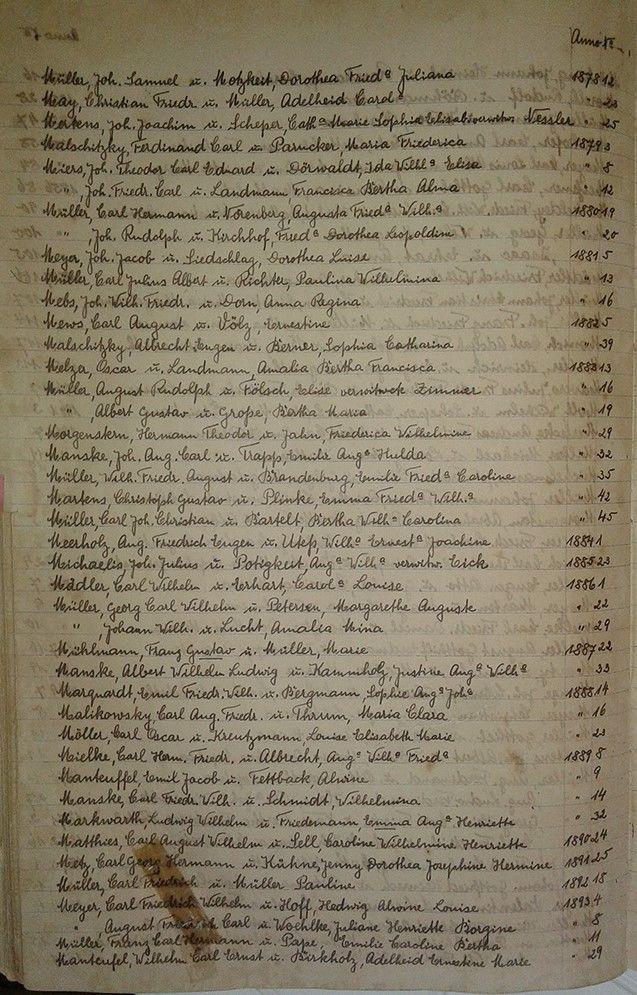 Anno No
Müller, Joh. Samuel u. Motzkeit, Dorothea Fried.a Juliana 1878 12
May, Christian Friedr. u. Müller, Adelheid Carol.a " 23
Mertens, Joh. Joachim u. Scheper, Cath.a Marie Sophia Elisab. verwitw. Nessler " 25
Malschitzky, Ferdinand Carl u. Parucker, Maria Friederica 1879 3
Meiers, Joh. Theodor Carl Eduard u. Dörwaldt, Ida Wilh.a Elisa " 8
" , Joh. Friedr. Carl u. Landmann, Francisca Bertha Alma " 12
Müller, Carl Hermann u. Norenberg, Augusta Fried.a Wilh.a 1880 19
" Joh. Rudolph u. Kirchhof, Fried.a Dorothea Leopoldine " 20
Meyer, Joh. Jacob u. Liedschlag, Dorothea Luise 1881 5
Müller, Carl Julius Albert u. Richter, Paulina Wilhelmina " 13
Mebs, Joh. Wilh. Friedr. u. Dorn, Anna Regina " 16
Mews, Carl August u. Völz, Ernestine 1882 5
Malschitzky, Albrecht Eugen u. Berner, Sophia Catharina " 39
Melzer, Oscar u. Landmann, Amalia Bertha Francisca 1883 13
Müller, August Rudolph u. Fölsch, Elise verwitwete Zimmer " 16
" , Albert Gustav u. Grope, Bertha Maria " 19
Morgenstern, Hermann Theodor u. Jahn, Friederica Wilhelmine " 29
Manske, Joh. Aug. Carl u. Trapp, Emilie Aug.a Hulda " 32
Müller, Wilh. Friedr. August u. Brandenburg, Emilie Fried.a Caroline " 35
Martens, Christoph Gustav u. Plinke, Emma Fried.a Wilh.a " 42
Müller, Carl Joh. Christian u. Bartelt, Bertha Wilh.a Carolina " 45
Meerholz, Aug. Friedrich Eugen u. Wilh.a Ernest.a Joachine 1884 1
Michaelis, Joh. Julius u. Potigkeit, Aug.a Wilh.a verwitw. Eick 1885 23
Mädler, Carl Wilhelm u. Erhart, Carol.a Louise 1886 1
Müller, Georg Carl Wilhelm u. Petersen, Margarethe Auguste " 22
" , Johann Wilh. u. Lucht, Amalia Mina " 29
Mühlmann, Franz Gustav u. Müller, Marie 1887 22
Manske, Albert Wilhelm Ludwig u. Kammholz, Justine Aug.a Wilh.a " 33
Marquardt, Emil Friedr. Wilh. u. Bergmann, Sophie Aug.a Joh.a 1888 14
Malikowsky, Carl Aug. Friedr. u. Thrum, Maria Clara " 16
Möller, Carl Oscar u. Kreutzmann, Louise Elisabeth Marie " 23
Mielke, Carl Herm. Friedr. u. Albrecht, Aug.a Wilh.a Fried.a 1889 8
Manteuffel, Emil Jacob u. Fettback, Alwine " 9
Manske, Carl Friedr. Wilh. u. Schmidt, Wilhelmina " 14
Markwarth Ludwig Wilhelm u. Friedemann Emma Aug.a Henriette " 32
Matthies, Carl August Wilhelm u. Sell, Caroline Wilhelmine Henriette 1890 24
Metz, Carl Georg Hermann u. Kühne, Jenny Dorothea Josephine Hermine 1891 25
Müller, Carl Friedrich u. Müller Pauline 1892 18
Meyer, Carl Friedrich Wilhelm u. Hoff, Hedwig Alwine Louise 1893 4
" August Friedrich Carl u. Wochlke, Juliane Henriette Georgine " 8
Müller, Franz Carl Hermann u. Pape, Emilie Caroline Bertha " 11
Manteufel, Wilhelm Carl Ernst u. Birkholz, Adelheid Ernestine Marie " 29